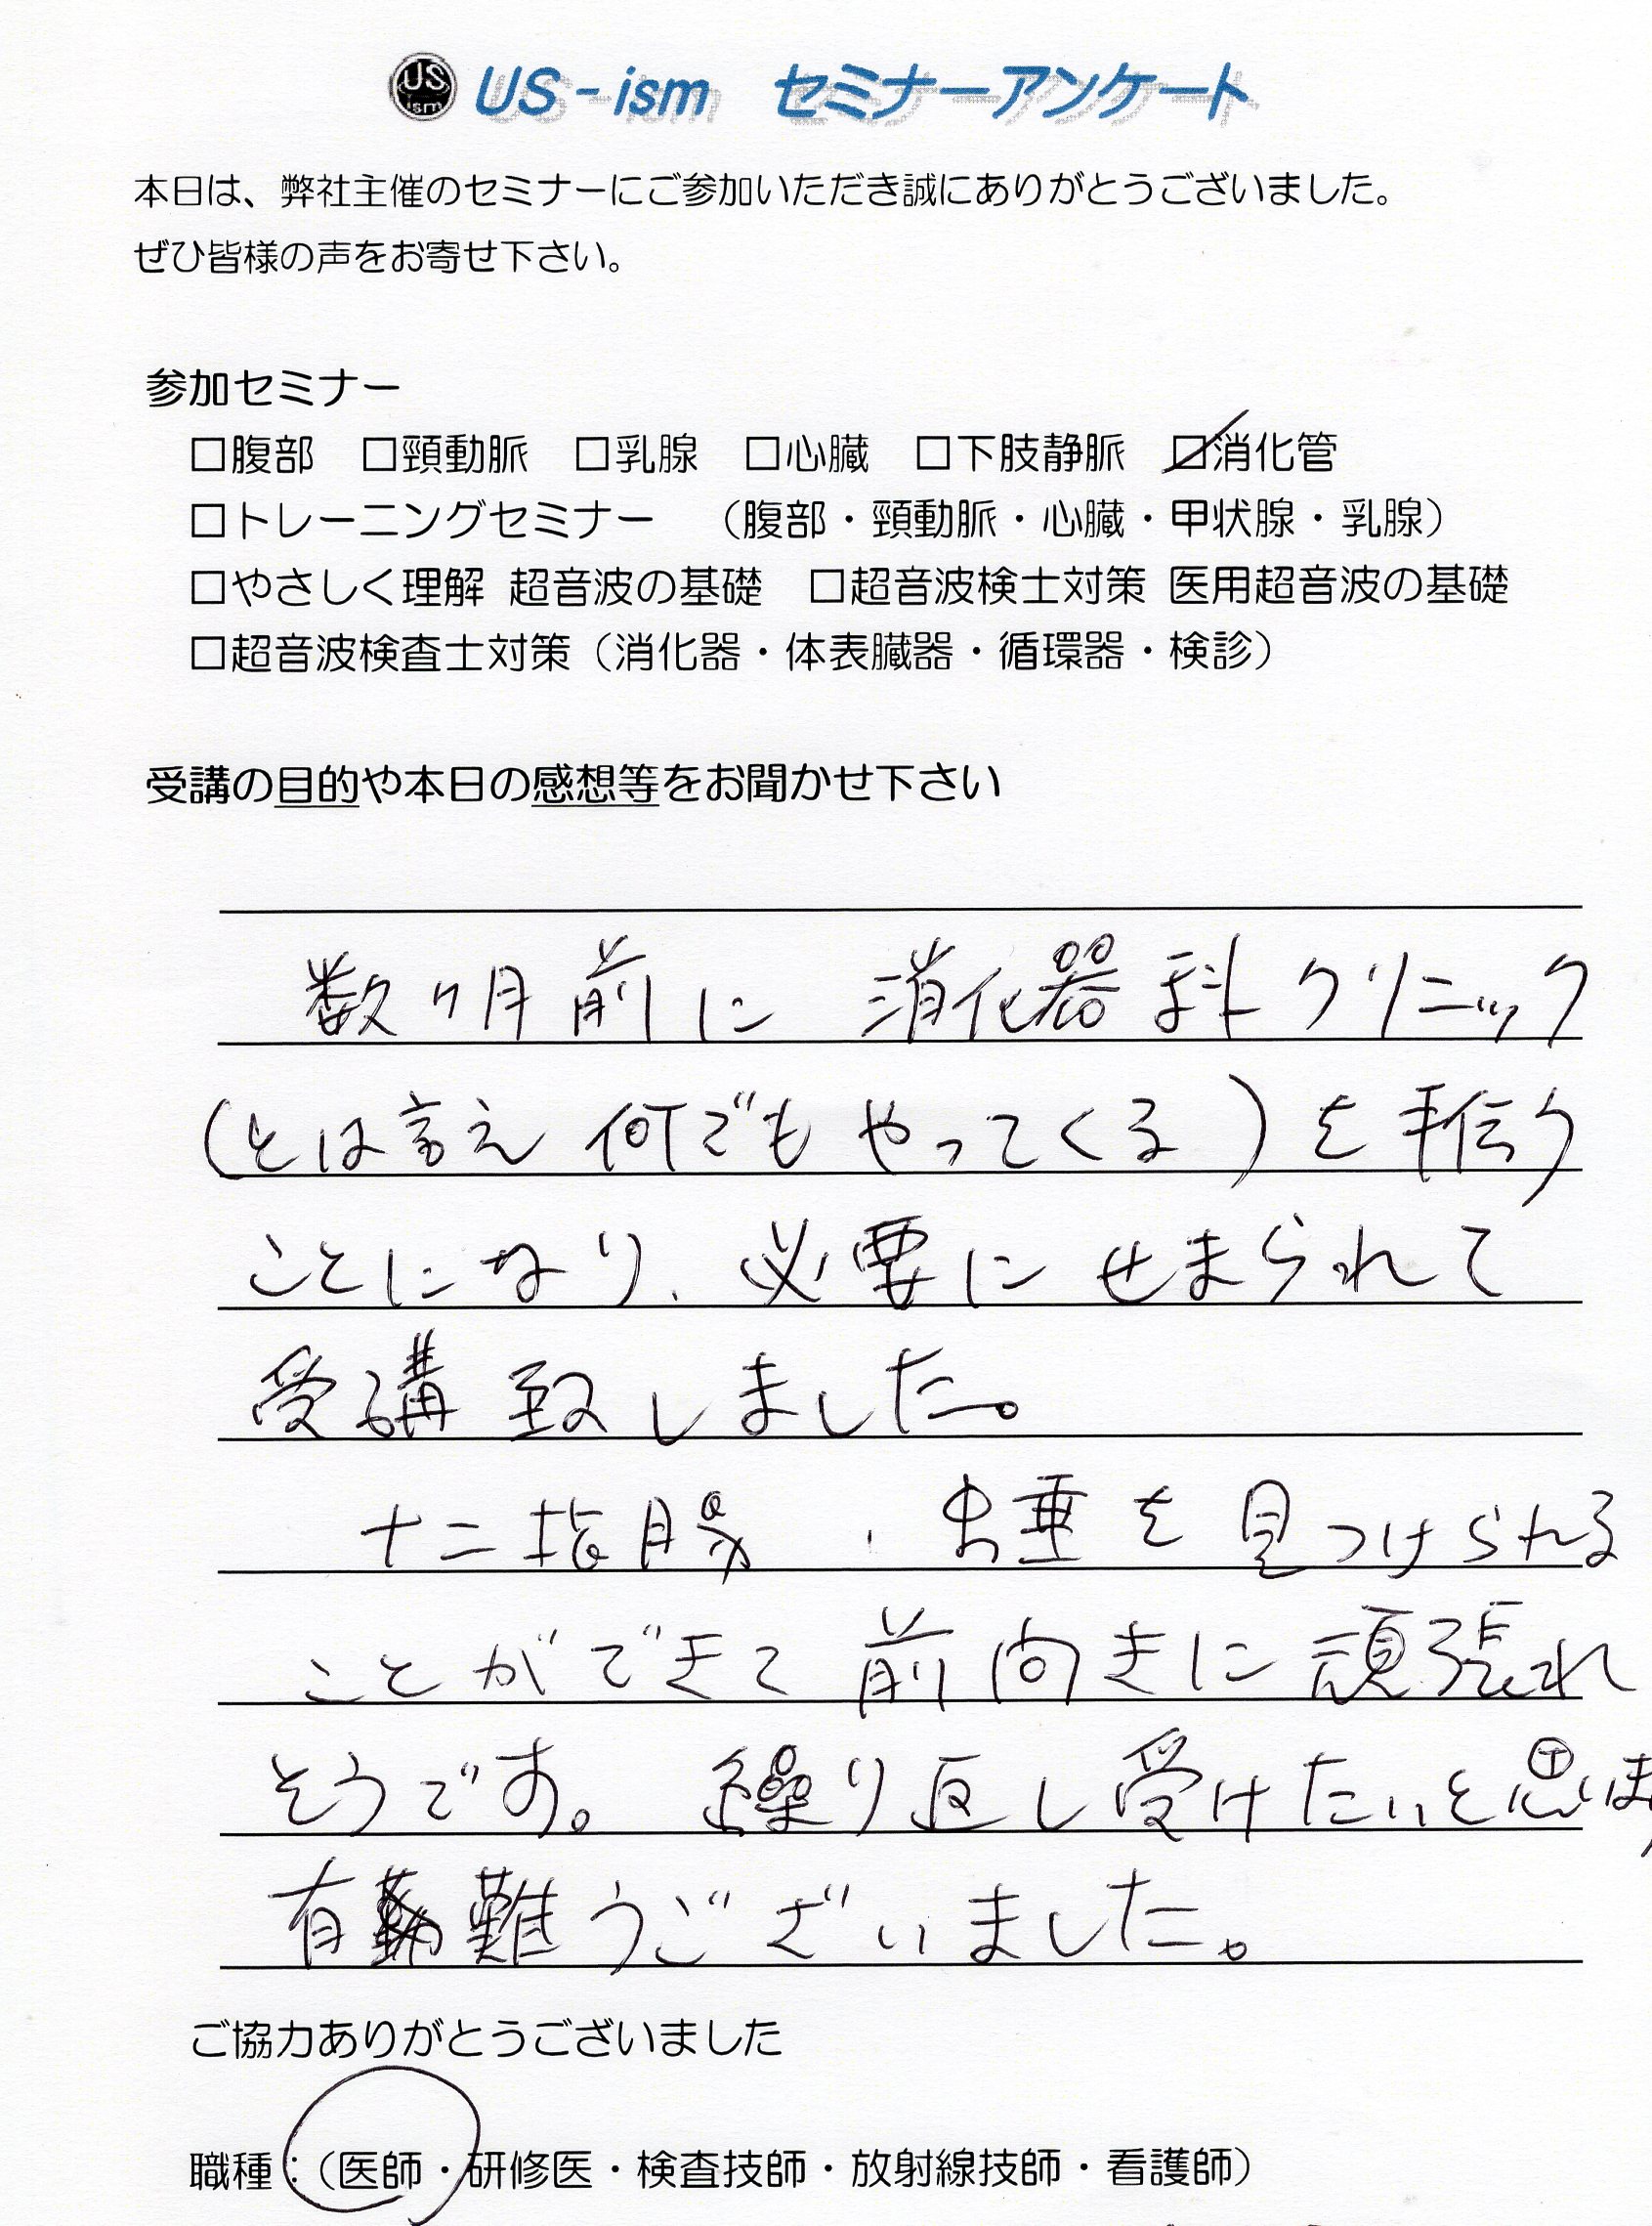 US ism US-ism セミナーアンケート
本日は、弊社主催のセミナーにご参加いただき誠にありがとうございました。
ぜひ皆様の声をお寄せ下さい。
参加セミナー
□腹部 □頸動脈 □乳腺 □心臓 □下肢静脈 ☑消化管
□トレーニングセミナー （腹部・頸動脈・心臓・甲状腺・乳腺）
□やさしく理解 超音波の基礎 □超音波検士対策 医用超音波の基礎
□超音波検査士対策（消化器・体表臓器・循環器・検診）
受講の目的や本日の感想等をお聞かせ下さい
数ヶ月前に 消化器科クリニック
(とは言え 何でも やってくる)を手伝う
ことになり、必要に せまられて
受講致しました。
十二指腸、虫垂を見つけられる
ことができて前向きに頑張れ
そうです。 繰り返し受けたいと思いま
有難うございました。
ご協力ありがとうございました
職種：（医師・研修医・検査技師・放射線技師・看護師）